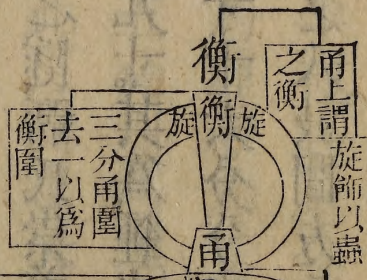 甬上謂
之衡
旋飾以蟲
衡
旋
衡
旋
三分甬圍
去一以爲
衡圍
甬